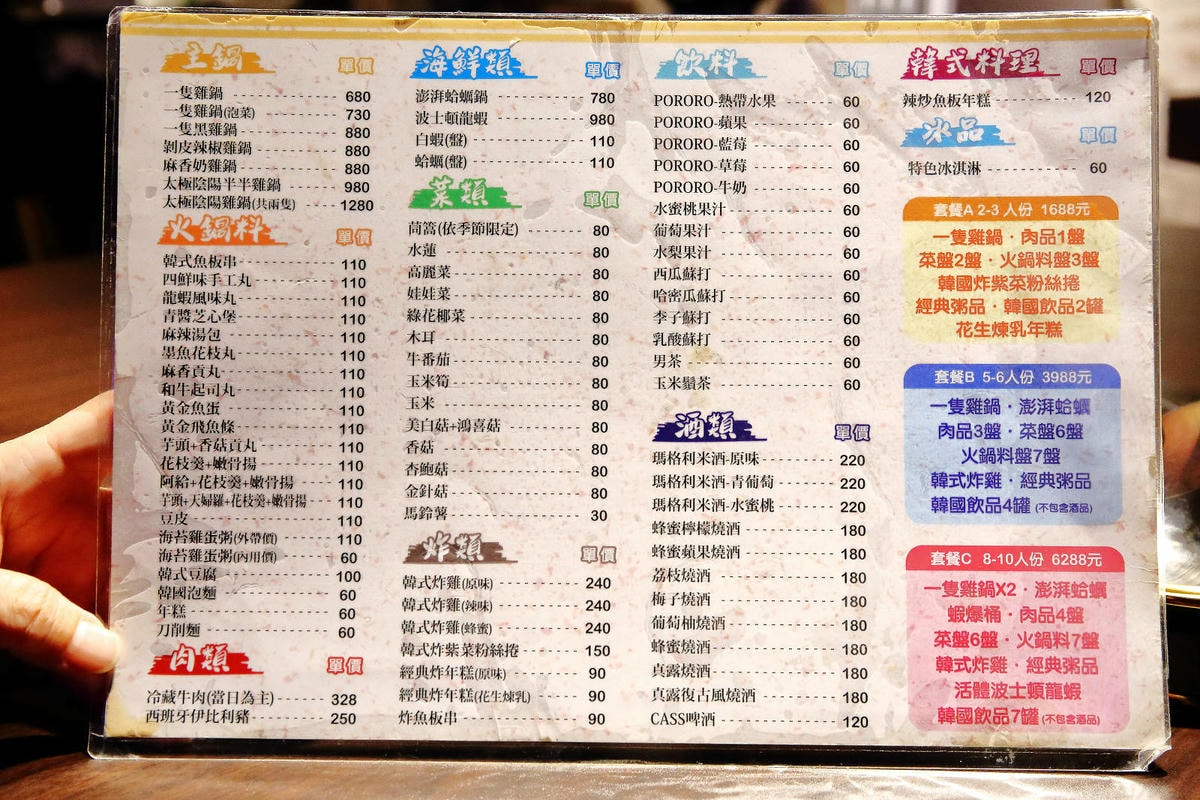 主鍋 單價
一隻雞鍋 680
一隻雞鍋(泡菜) 730
一隻黑雞鍋 880
剝皮辣椒雞鍋 880
麻香奶雞鍋 880
太極陰陽半半雞鍋 980
太極陰陽雞鍋(共兩隻) 1280
火鍋料 單價
韓式魚板串 110
四鮮味手工丸 110
龍蝦風味丸 110
青醬芝心堡 110
麻辣湯包 110
墨魚花枝丸 110
麻香貢丸 110
和牛起司丸 110
黃金魚蛋 110
黃金飛魚條 110
芋頭+香菇貢丸 110
花枝羹+嫩骨揚 110
阿給+花枝羹+嫩骨揚 110
芋頭+天婦羅+花枝羹+嫩骨揚 110
豆皮 110
海苔雞蛋粥(外帶價) 110
海苔雞蛋粥(內用價) 60
韓式豆腐 100
韓國泡麵 60
年糕 60
刀削麵 60
肉類 單價
冷藏牛肉(當日為主) 328
西班牙伊比利豬 250
海鮮類 單價
澎湃蛤蠣鍋 780
波士頓龍蝦 980
白蝦(盤) 110
蛤蠣(盤) 110
菜類 單價
茼蒿(依季節限定) 80
水蓮 80
高麗菜 80
娃娃菜 80
綠花椰菜 80
木耳 80
牛番茄 80
玉米筍 80
玉米 80
美白菇+鴻喜菇 80
香菇 80
杏鮑菇 80
金針菇 80
馬鈴薯 30
炸類 單價
韓式炸雞(原味) 240
韓式炸雞(辣味) 240
韓式炸雞(蜂蜜) 240
韓式炸紫菜粉絲捲 150
經典炸年糕(原味) 90
經典炸年糕(花生煉乳) 90
炸魚板串 90
飲料 單價
PORORO-熱帶水果 60
PORORO-蘋果 60
PORORO-藍莓 60
PORORO-草莓 60
PORORO-牛奶 60
水蜜桃果汁 60
葡萄果汁 60
水梨果汁 60
西瓜蘇打 60
哈密瓜蘇打 60
李子蘇打 60
乳酸蘇打 60
男茶 60
玉米鬚茶 60
酒類 單價
瑪格利米酒-原味 220
瑪格利米酒-青葡萄 220
瑪格利米酒-水蜜桃 220
蜂蜜檸檬燒酒 180
蜂蜜蘋果燒酒 180
荔枝燒酒 180
梅子燒酒 180
葡萄柚燒酒 180
蜂蜜燒酒 180
真露燒酒 180
真露復古風燒酒 180
CASS啤酒 120
韓式料理 單價
辣炒魚板年糕 120
冰品 單價
特色冰淇淋 60
套餐A 2-3人份 1688元
一隻雞鍋・肉品1盤
菜盤2盤・火鍋料盤3盤
韓國炸紫菜粉絲捲
經典粥品・韓國飲品2罐
花生煉乳年糕
套餐B 5-6人份 3988元
一隻雞鍋・澎湃蛤蠣
肉品3盤・菜盤6盤
火鍋料盤7盤
韓式炸雞・經典粥品
韓國飲品4罐(不包含酒品)
套餐C 8-10人份 6288元
一隻雞鍋X2・澎湃蛤蠣
蝦爆桶・肉品4盤
菜盤6盤・火鍋料7盤
韓式炸雞・經典粥品
活體波士頓龍蝦
韓國飲品7罐(不包含酒品)